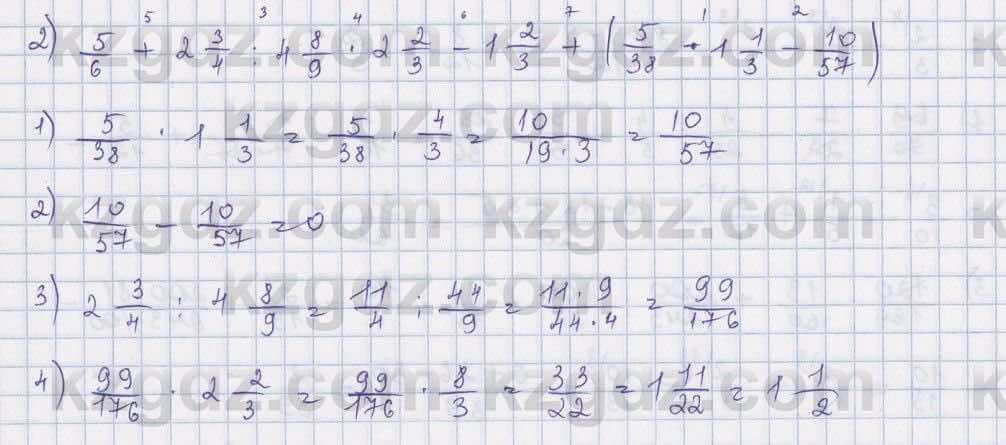 5 3 4 6 7 1 2
2) 5/6 + 2 3/4 : 4 8/9 · 2 2/3 - 1 2/3 + (5/38 · 1 1/3 - 10/57)
1) 5/38 · 1 1/3 = 5/38 · 4/3 = 10/19·3 = 10/57
2) 10/57 - 10/57 = 0
3) 2 3/4 : 4 8/9 = 11/4 : 44/9 = 11·9/44·4 = 99/176
4) 99/176 · 2 2/3 = 99/176 · 8/3 = 33/22 = 1 11/22 = 1 1/2
kzgdz.com kzgdz.com
kzgdz.com
kzgdz.com kzgdz.com
kzgdz.com
kzgdz.com kzgdz.com